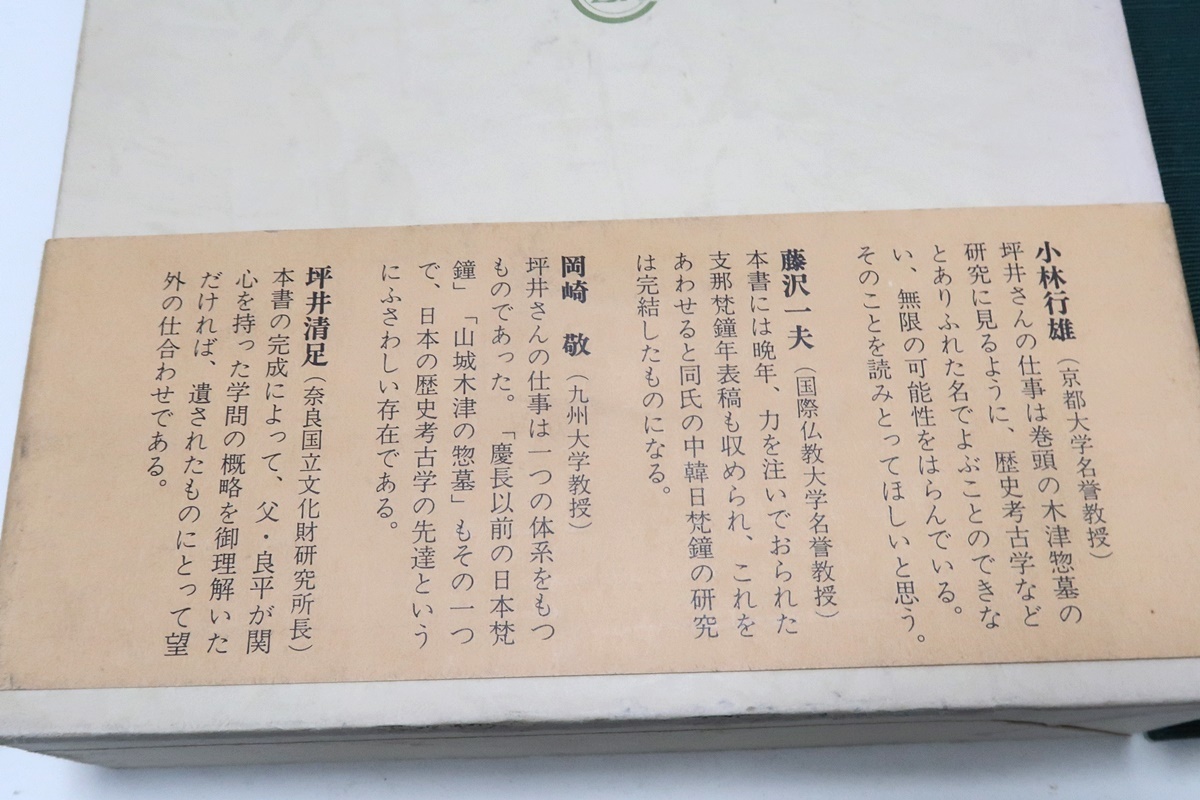 小林行雄(京都大学名誉教授)
坪井さんの仕事は巻頭の木津惣墓の
研究に見るように、歴史考古学など
とありふれた名でよぶことのできな
い、無限の可能性をはらんでいる。
そのことを読みとってほしいと思う。
藤沢一夫(国際仏教大学名誉教授)
本書には晩年、力を注いでおられた
支那梵鐘年表稿も収められ、これを
あわせると同氏の中韓日梵鐘の研究
は完結したものになる。
岡崎 敬(九州大学教授)
坪井さんの仕事は一つの体系をもつ
ものであった。「慶長以前の日本梵
鐘」「山城木津の惣墓」もその一つ
で、日本の歴史考古学の先達という
にふさわしい存在である。
坪井清足(奈良国立文化財研究所長)
本書の完成によって、父・良平が関
心を持った学問の概略を御理解いた
だければ、遺されたものにとって望
外の仕合わせである。